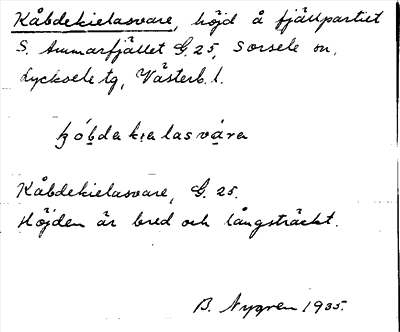 Kåbdekielasvare, höjd å fjällpartiet
S. Ammarfjället G. 25, Sorsele sn,
Lycksele tg, Västerb. l.
kǻbdekielasvárē
Kåbdekielasvare, G. 25.
Höjden är bred och långsträckt.
B. Nygren 1935.